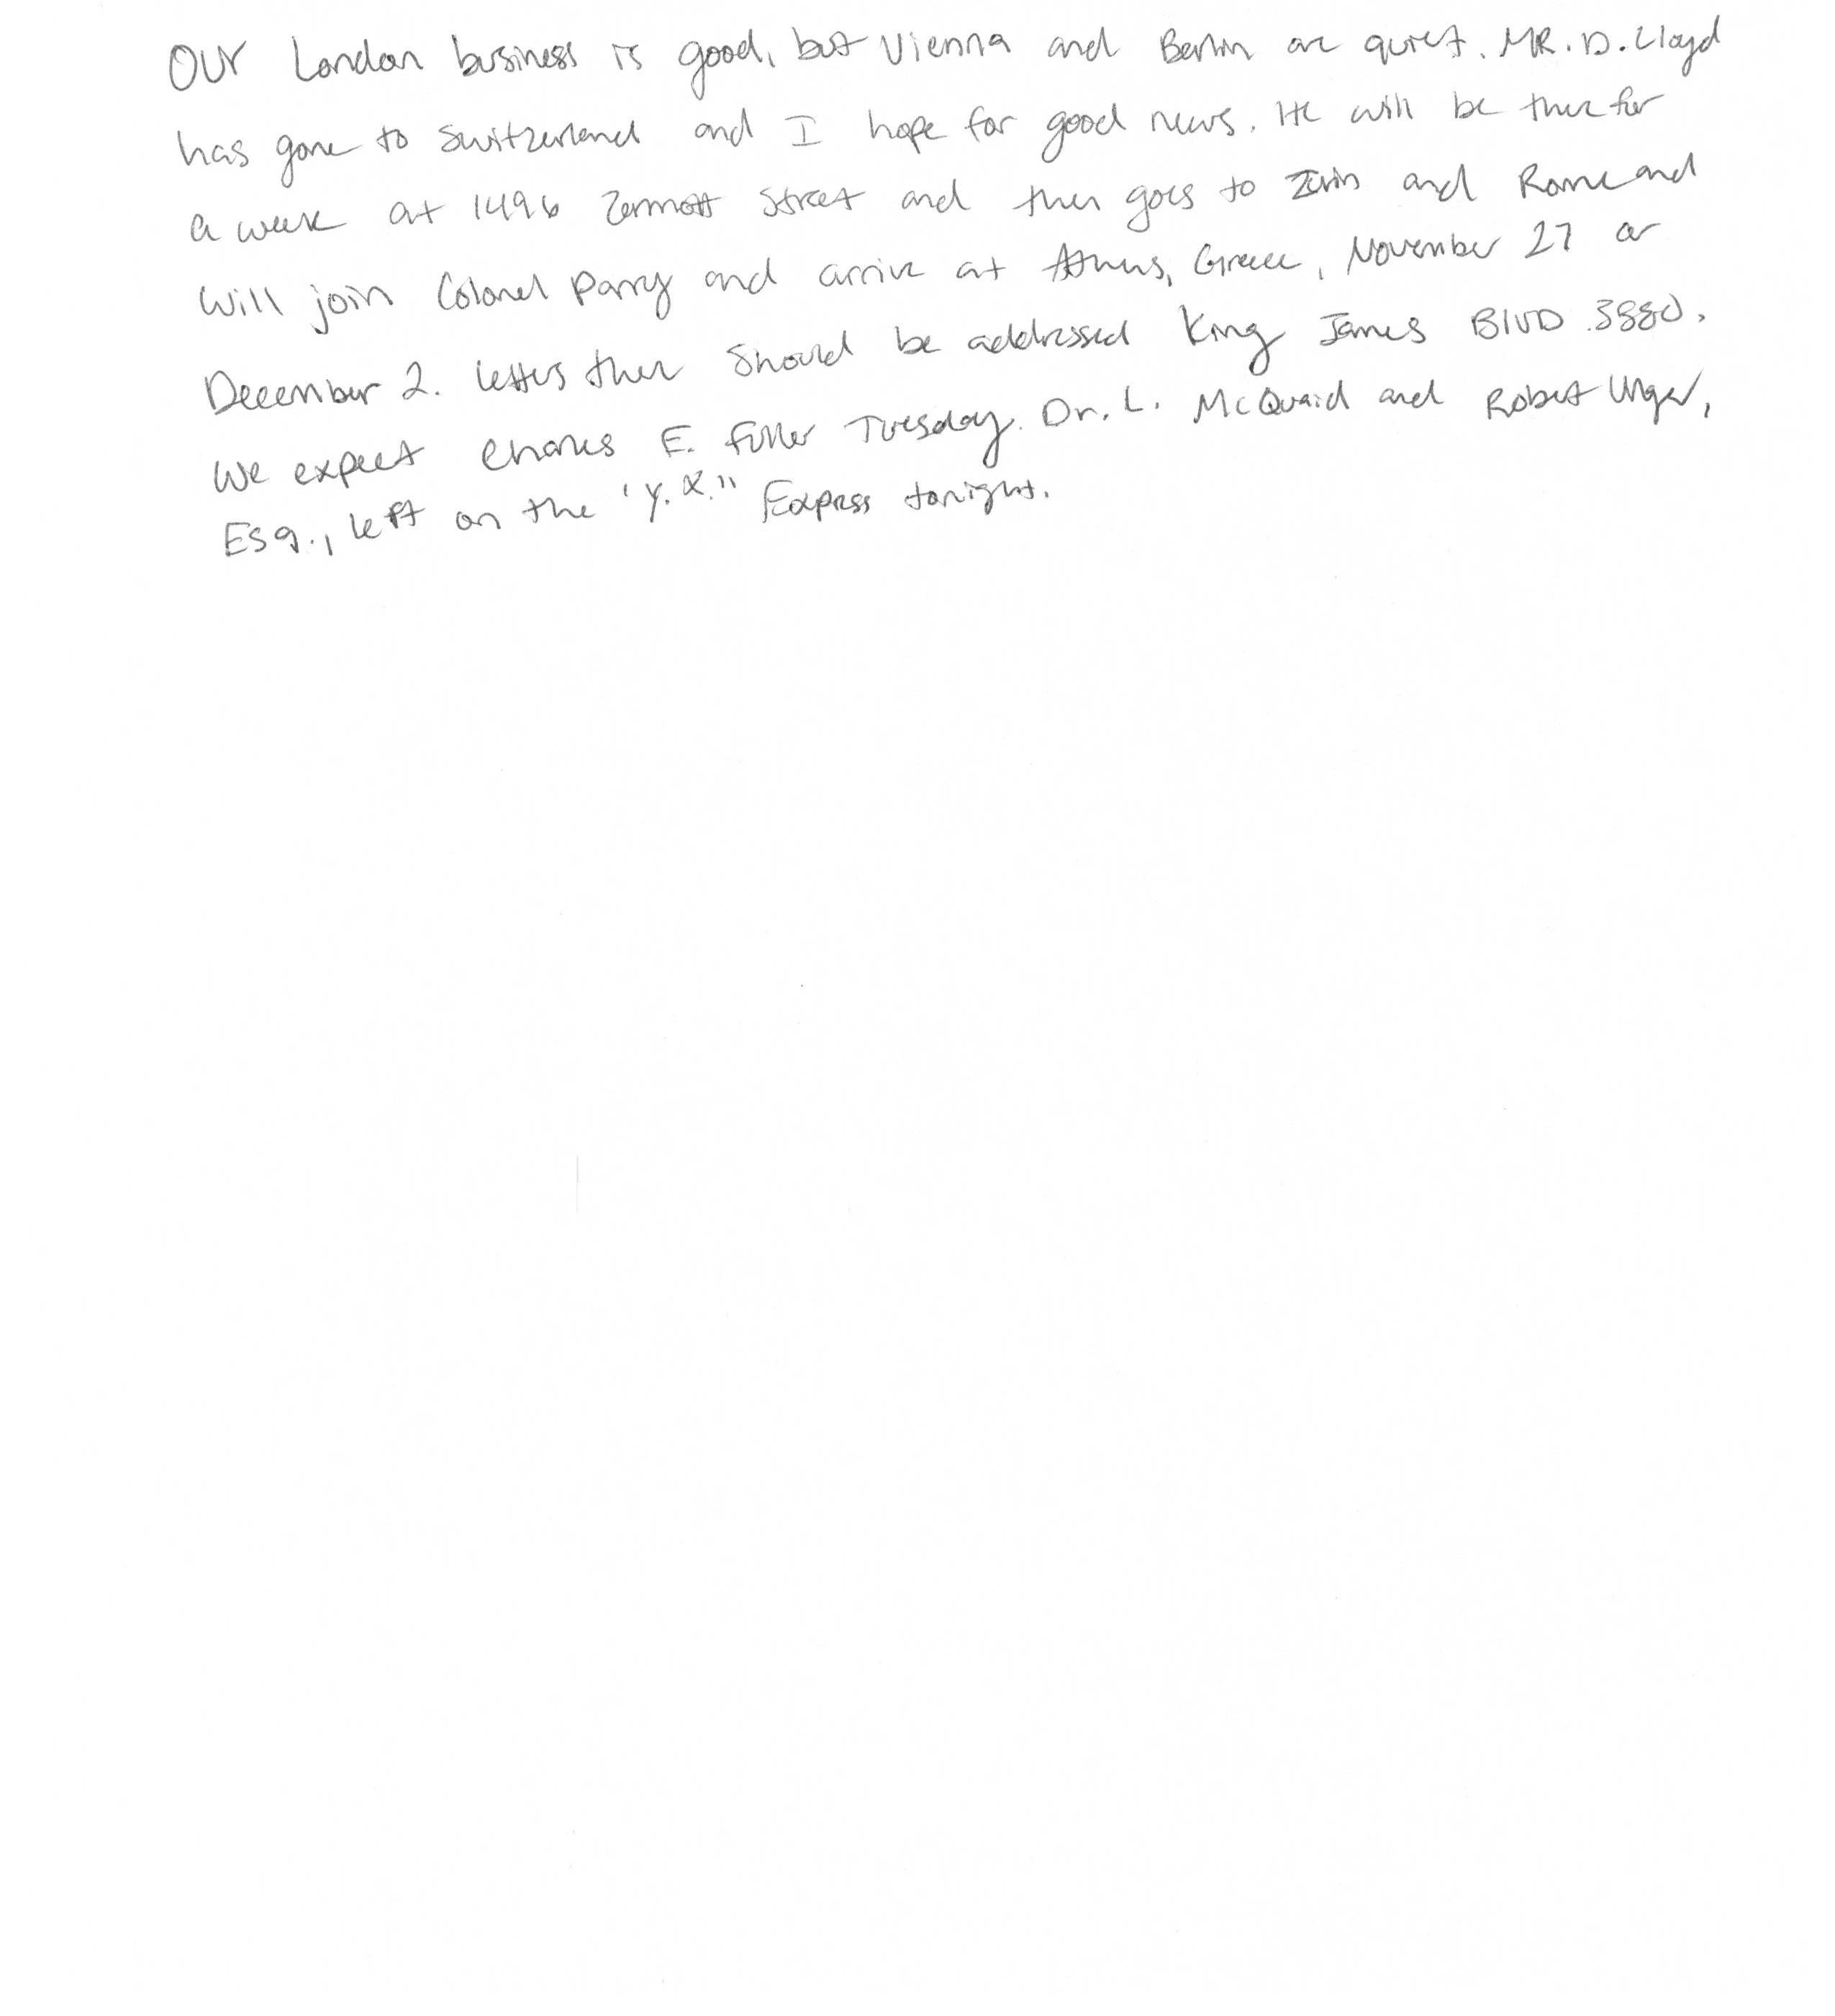 OUR London business is good, but Vienna and Berlin are quiet. MR. D. Lloyd
has gone to Switzerland and I hope for good news. He will be there for
a week at 1496 Zermott Street and then goes to Turin and Rome and
will join Colonel Parry and arrive at Athens, Greece, November 27 or
December 2. Letters there should be addressed King James BLVD 3880.
We expect Charles E. Fuller Tuesday. Dr. L. McQuaid and Robert Unger,
Esq., left on the "Y.X." Express tonight.